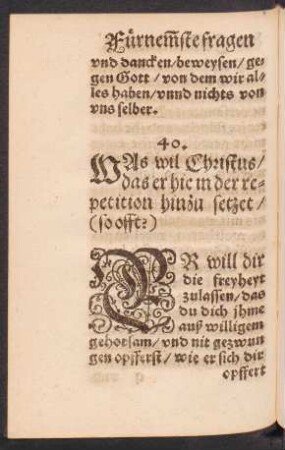 Fürnem̃ste fragen
vnd dancken/beweysen/ ge-
gen Gott / von dem wir al-
les haben/vnnd nichts von
vns selber.
40.
WAs wil Christus/
das er hie in der re-
petition hinzu setzet /
(so offt?)
ER will dir
die freyheyt
zulassen/das
du dich jhme
auß willigem
gehorsam/ vnd nit gezwun
gen opfferst/ wie er sich dir
opffert